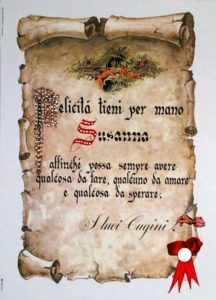 Felicità tieni per mano
Susanna
affinché possa sempre avere
qualcosa da fare, qualcuno da amare
e qualcosa da sperare.
I tuoi Cugini